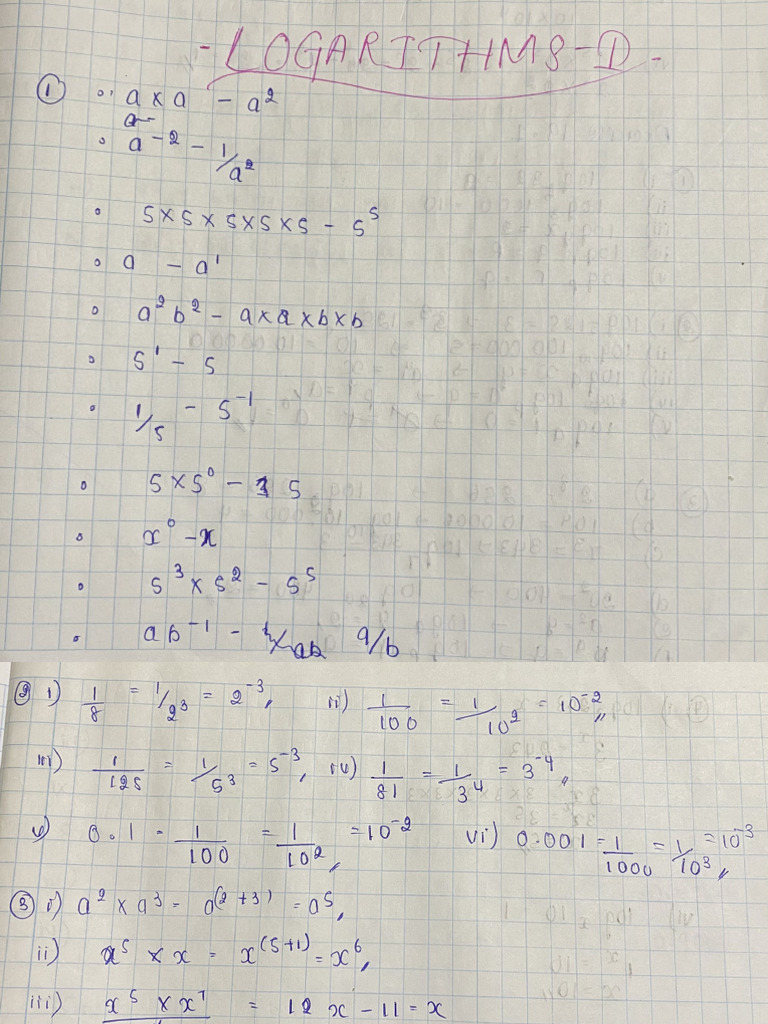 - LOGARITHMS - I -
① • a × a - a²
• a⁻² - 1/a²
• 5 × 5 × 5 × 5 × 5 - 5⁵
• a - a¹
• a² b² - a × a × b × b
• 5¹ - 5
• 1/5 - 5⁻¹
• 5 × 5⁰ - 5
• x⁰ - x
• 5³ × 5² - 5⁵
• ab⁻¹ - a/b
② i) 1/8 = 1/2³ = 2⁻³,, ii) 1/100 = 1/10² = 10⁻²,,
iii) 1/125 = 1/5³ = 5⁻³,, iv) 1/81 = 1/3⁴ = 3⁻⁴,,
v) 0.1 = 1/100 = 1/10² = 10⁻² vi) 0.001 = 1/1000 = 1/10³ = 10⁻³,,
③ i) a² × a³ = a(2+3) = a⁵,,
ii) x⁵ × x = x(5+1) = x⁶,,
iii) x⁵ × x⁷ = 12x - 11 = x